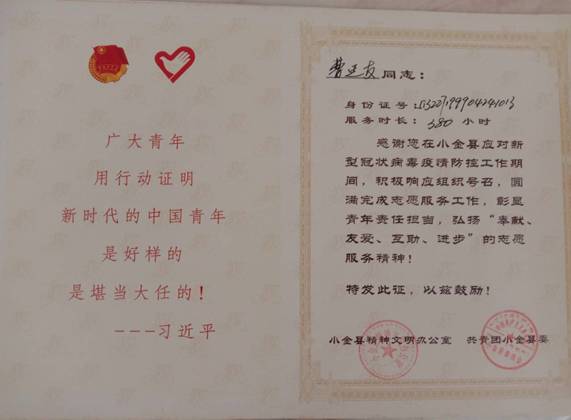 广大青年
用行动证明
新时代的中国青年
是好样的
是堪当大任的！
---习近平
同志：
身份证号：
服务时长：380 小时
感谢您在小金县应对新
型冠状病毒疫情防控工作期
间，积极响应组织号召，圆
满完成志愿服务工作，彰显
青年责任担当，弘扬“奉献、
友爱、互助、进步”的志愿
服务精神！
特发此证，以兹鼓励！
小金县精神文明办公室 共青团小金县委